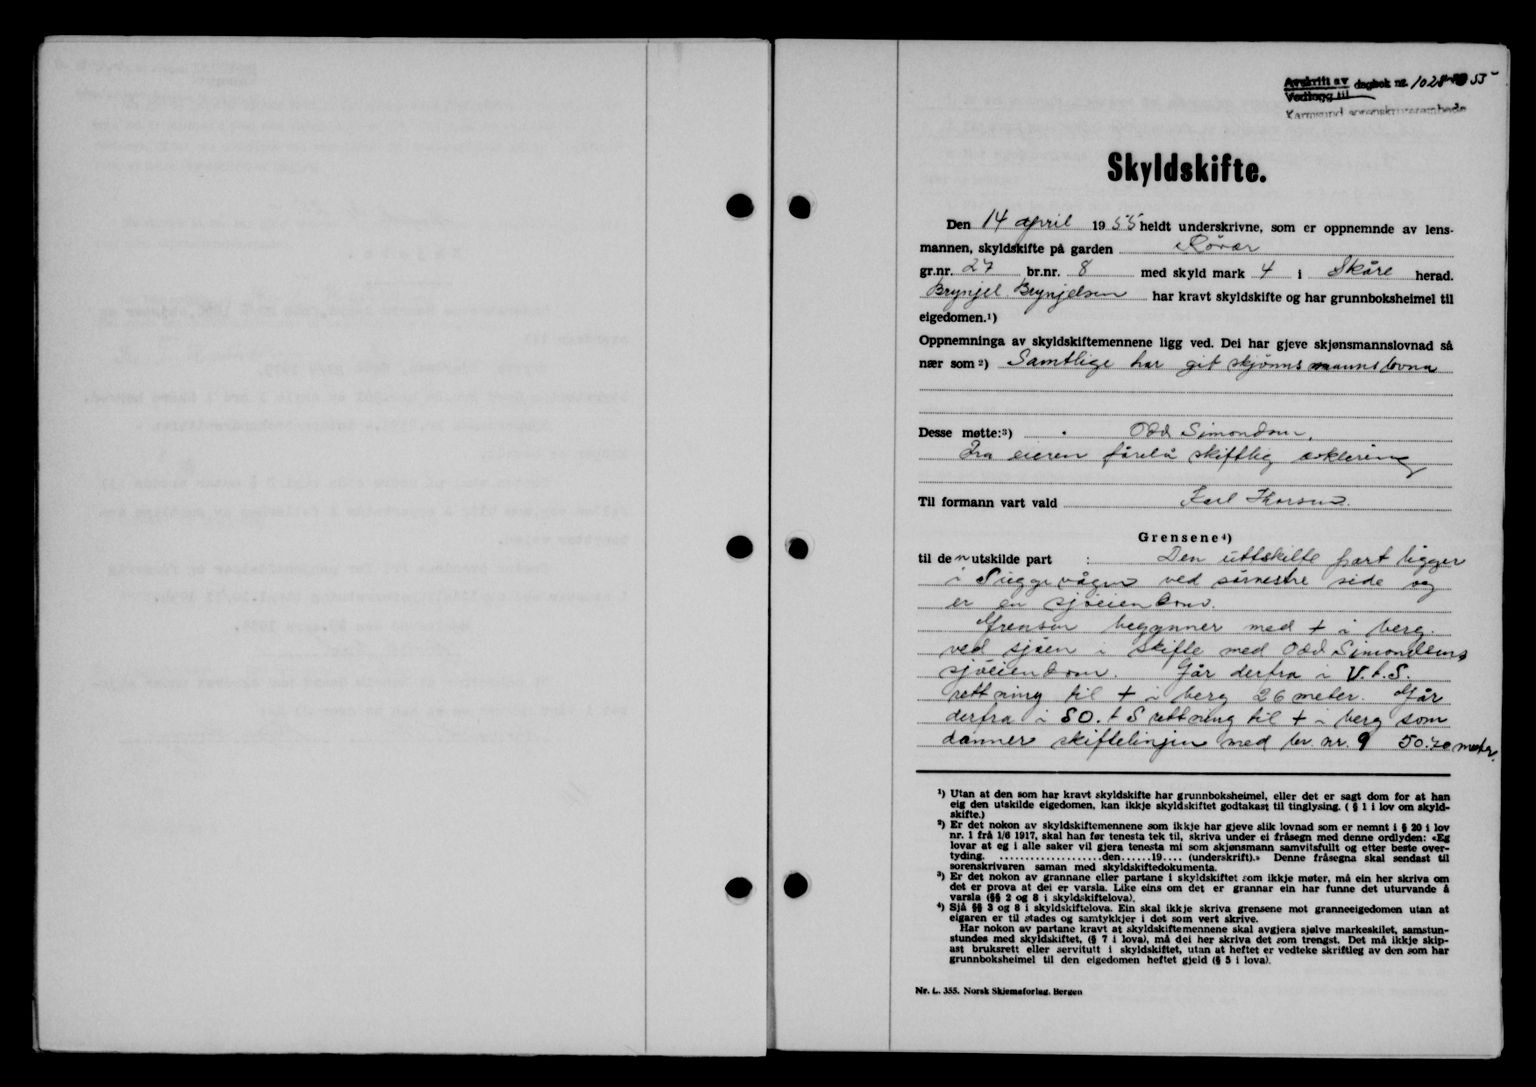 Avskrift av dagbok nr. 1028 1955
Vedlegg til
Karmsund sorenskrivarembede
Skyldskifte.
Den 14 april 1955 heldt underskrivne, som er oppnemnde av lens-
mannen, skyldskifte på garden Røvær
gr.nr. 27 br.nr. 8 med skyld mark 4 i Skåre herad.
Brynjel Brynjelsen har kravt skyldskifte og har grunnboksheimel til
eigedomen.¹)
Oppnemninga av skyldskiftemennene ligg ved. Dei har gjeve skjønsmannslovnad så
nær som ²) Samtlige har git skjønnsmannslovna
Desse møtte:³) Odd Simonsen.
Fra eieren førelå skiftlig erklering
Til formann vart vald Karl
Grensene⁴)
til den utskilde part : Den uttskilte part ligger
i vågen ved sørvestre side og
er en sjøeiendom.
Grensen begynner med + i berg
ved sjøen i skifte med Odd Simonsens
sjøeiendom. Går derfra i V.t.S.
rettning til + i berg 26 meter. Går
derfra i SO. t S rettning til + i berg som
danner skiftelinjen med br. nr. 9 50.70 meter.
¹) Utan at den som har kravt skyldskifte har grunnboksheimel, eller det er sagt dom for at han
eig den utskilde eigedomen, kan ikkje skyldskiftet godtakast til tinglysing. ( § 1 i lov om skyld-
skifte.)
²) Er det nokon av skyldskiftemennene som ikkje har gjeve slik lovnad som er nemnt i § 20 i lov
nr. 1 frå 1/6 1917, skal han før tenesta tek til, skriva under ei fråsegn med denne ordlyden: «Eg
lovar at eg i alle saker vil gjera tenesta mi som skjønsmann samvitsfullt og etter beste over-
tyding. ....................den......19.... (underskrift).» Denne fråsegna skal sendast til
sorenskrivaren saman med skyldskiftedokumenta.
³) Er det nokon av grannane eller partane i skyldskiftet som ikkje møter, må ein her skriva om
det er prova at dei er varsla. Like eins om det er grannar ein har funne det uturvande å
varsla (§§ 2 og 8 i skyldskiftelova).
⁴) Sjå §§ 3 og 8 i skyldskiftelova. Ein skal ikkje skriva grensene mot granneeigedomen utan at
eigaren er til stades og samtykkjer i det som vert skrive.
Har nokon av partane kravt at skyldskiftemennene skal avgjera sjølve markeskilet, samstun-
stundes med skyldskiftet, (§ 7 i lova), må dei her skriva det som trengst. Det må ikkje skip-
ast bruksrett eller servitutt i skyldskiftet, utan at heftet er vedteke skriftleg av den som har
grunnboksheimel til den eigedomen heftet gjeld (§ 5 i lova).
Nr. L. 355. Norsk Skjemaforlag, Bergen